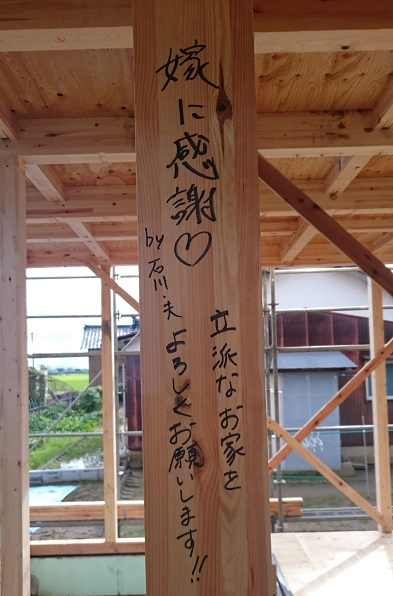 嫁に感謝♡
by 石川・夫
立派なお家を
よろしくお願いします!!